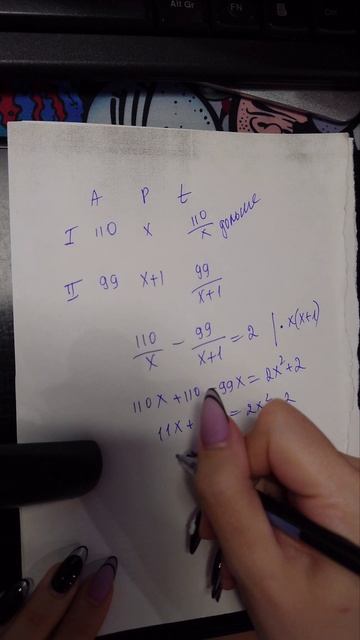 Alt Gr FN
A P t
I 110 x 110/x дольше
II 99 x+1 99/x+1
110/x - 99/x+1 = 2 | · x(x+1)
110x + 110 - 99x = 2x² + 2
11x + = 2x² 2